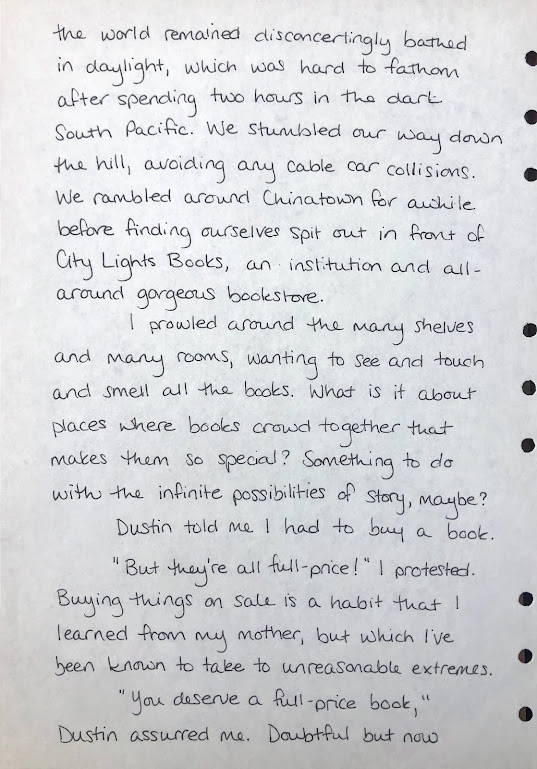 the world remained disconcertingly bathed
in daylight, which was hard to fathom
after spending two hours in the dark
South Pacific. We stumbled our way down
the hill, avoiding any cable car collisions.
We rambled around Chinatown for awhile
before finding ourselves spit out in front of
City Lights Books, an institution and all-
around gorgeous bookstore.
I prowled around the many shelves
and many rooms, wanting to see and touch
and smell all the books. What is it about
places where books crowd together that
makes them so special? Something to do
with the infinite possibilities of story, maybe?
Dustin told me I had to buy a book.
"But they're all full-price!" I protested.
Buying things on sale is a habit that I
learned from my mother, but which I've
been known to take to unreasonable extremes.
"You deserve a full-price book,"
Dustin assurred me. Doubtful but now